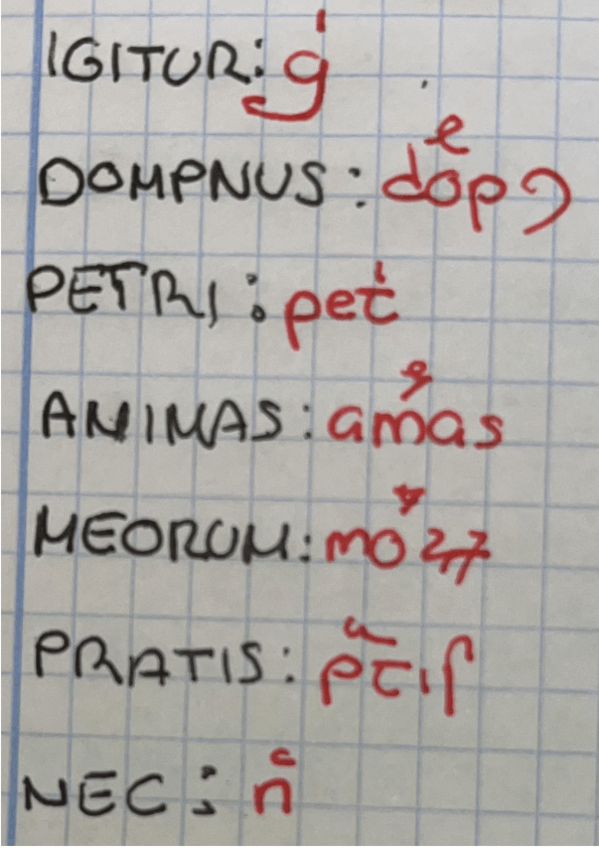 IGITUR: gͥ
DOMPNUS: dopꝰ
PETRI: petͥ
ANIMAS: amas
MEORUM: moꝝ
PRATIS: pᷓtiſ
NEC: nͨ